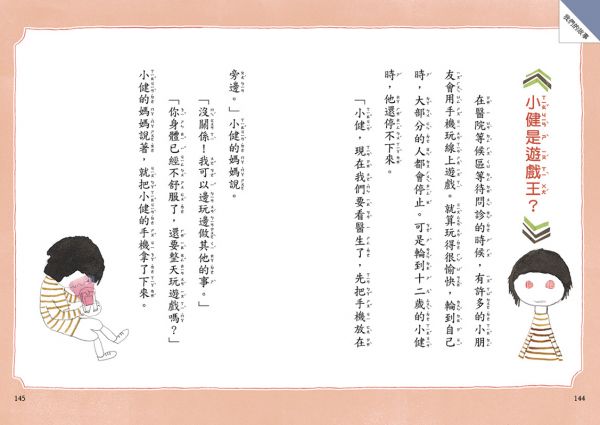 我們的故事
小健是遊戲王？
在醫院等候區等待問診的時候，有許多的小朋
友會用手機玩線上遊戲。就算玩得很愉快，輪到自己
時，大部分的人都會停止。可是輪到十二歲的小健
時，他還停不下來。
「小健，現在我們要看醫生了，先把手機放在
旁邊。」小健的媽媽說。
「沒關係！我可以邊玩邊做其他的事。」
「你身體已經不舒服了，還要整天玩遊戲嗎？」
小健的媽媽說著，就把小健的手機拿了下來。
144
145